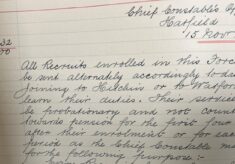 Chief Constable's Of
Hatfield
15. Nov
32
All Recruits enrolled in this Force
be sent alternately accordingly to da
joining to Hitchin or to Watford
learn their duties. Their services
be probationary and not count
towards pension for the first four
after their enrolment or for such
period as the Chief Constable m
for the following purpose :-